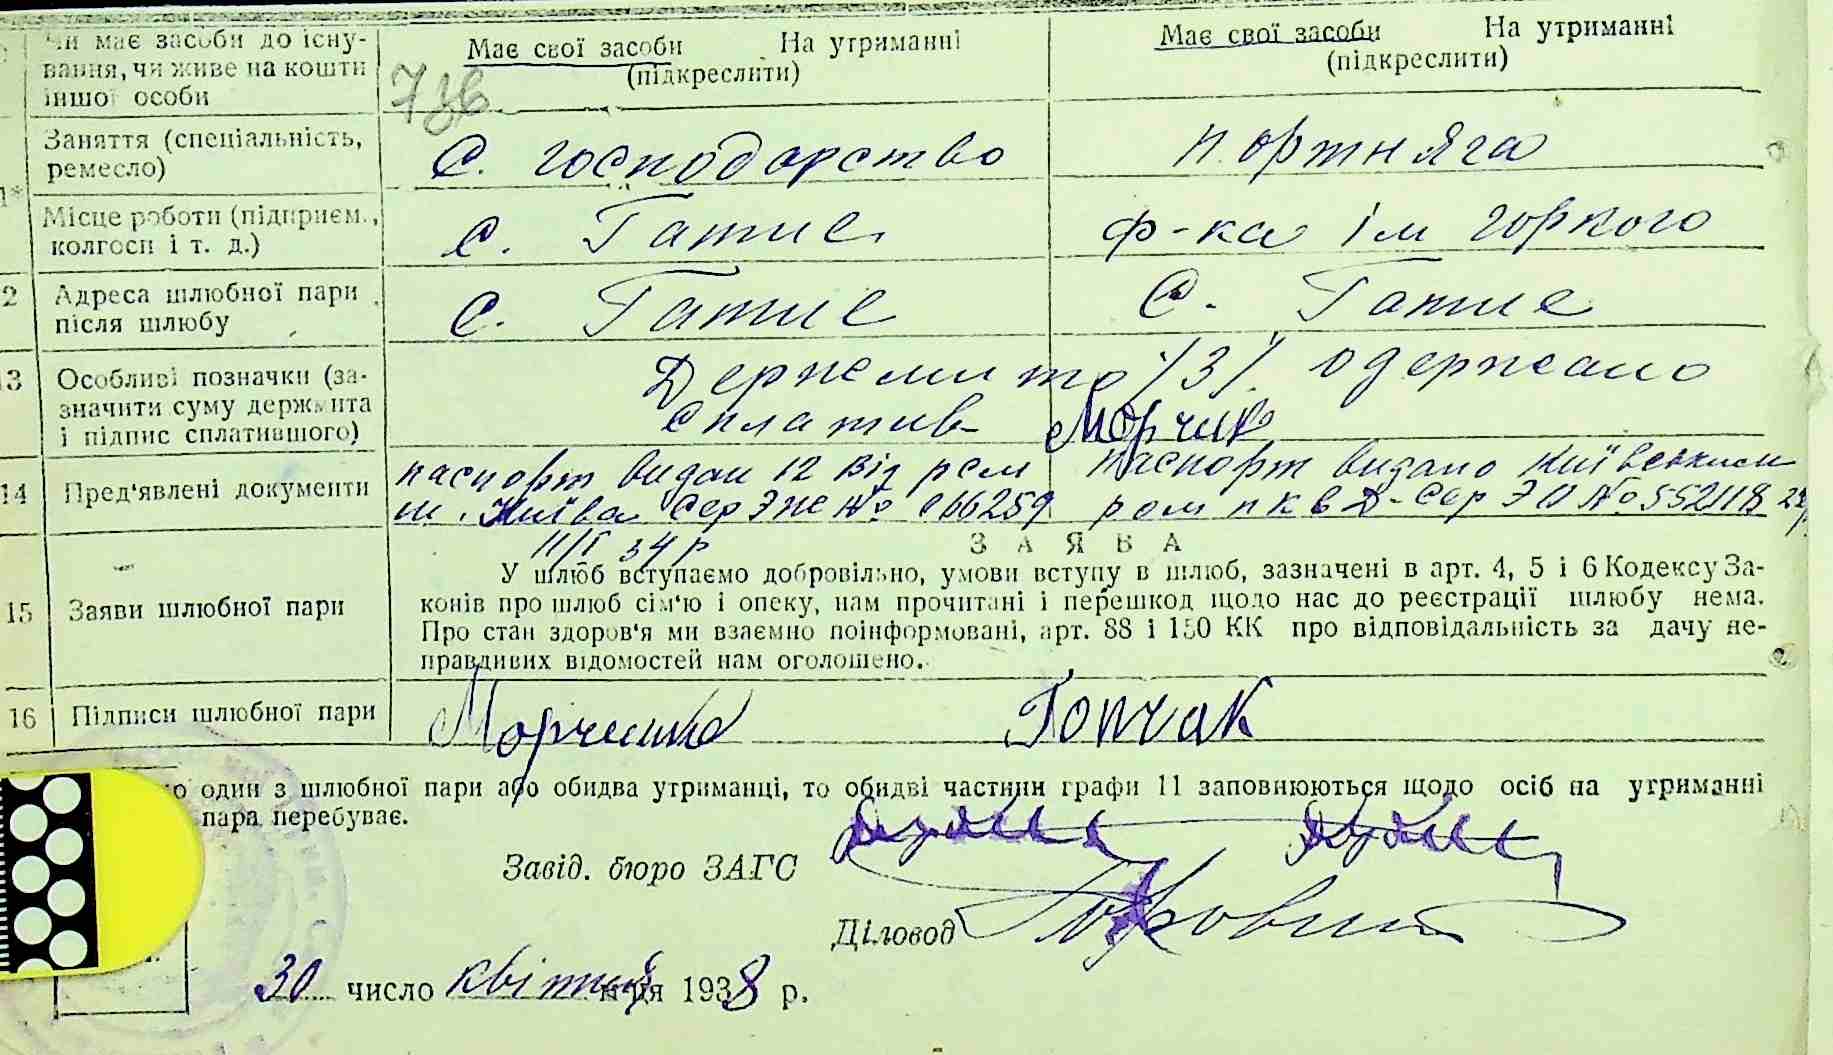 Чи має засоби до існу-
вання, чи живе на кошти
іншої особи
Має свої засоби На утриманні
(підкреслити)
Має свої засоби На утриманні
(підкреслити)
Заняття (спеціальність,
ремесло)
С. господарство
портняга
Місце роботи (підприєм.,
колгосп і т. д.)
с. Гатне
ф-ка ім Горкого
2 Адреса шлюбної пари
після шлюбу
с. Гатне
с. Гатне
13 Особливі позначки (за-
значити суму держмита
і підпис сплатившого)
Держмито /3/. одержано
Сплатив
14 Пред'явлені документи
паспорт видан 12 від рсм
м. Київа Сер ЭЖ № 066259
11/І 34 р
паспорт видано Київським
№ 552118
15 Заяви шлюбної пари
ЗАЯВА
У шлюб вступаємо добровільно, умови вступу в шлюб, зазначені в арт. 4, 5 і 6 Кодексу За-
конів про шлюб сім'ю і опеку, нам прочитані і перешкод щодо нас до реєстрації шлюбу нема.
Про стан здоров'я ми взаємно поінформовані, арт. 88 і 150 КК про відповідальність за дачу не-
правдивих відомостей нам оголошено.
16 Підписи шлюбної пари
Гопчак
один з шлюбної пари або обидва утриманці, то обидві частини графи 11 заповнюються щодо осіб на утриманні
пара перебуває.
Завід. бюро ЗАГС
Діловод
30 число квітня м-ця 1938 р.